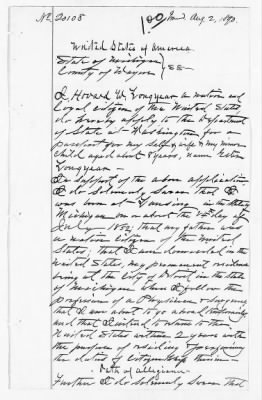 No 20108
1.00 Issd. Aug. 2, 1890.
United States of America
State of Michigan
County of Wayne } SS-
I, Howard W. Longyear a native and
loyal citizen of the United States
do hereby apply to the Department
of State at Washington for a
passport for my self, wife & my minor
child aged about 8 years, name Esther
Longyear —
In support of the above application
I do solemnly swear that I
was born at Lansing in the State of
Michigan on or about the 24th day of
July 1852, that my father was
a native citizen of the United
States, that I am domiciled in the
United States, my permanent residence
being at the city of Detroit in the state
of Michigan where I follow the
profession of a Physician & Surgeon,
that I am about to go abroad temporarily
and that I intend to return to the
United States within 2 years with
the purpose of residing & performing
the duties of citizenship therein -
- Oath of allegiance -
Further I do solemnly swear that